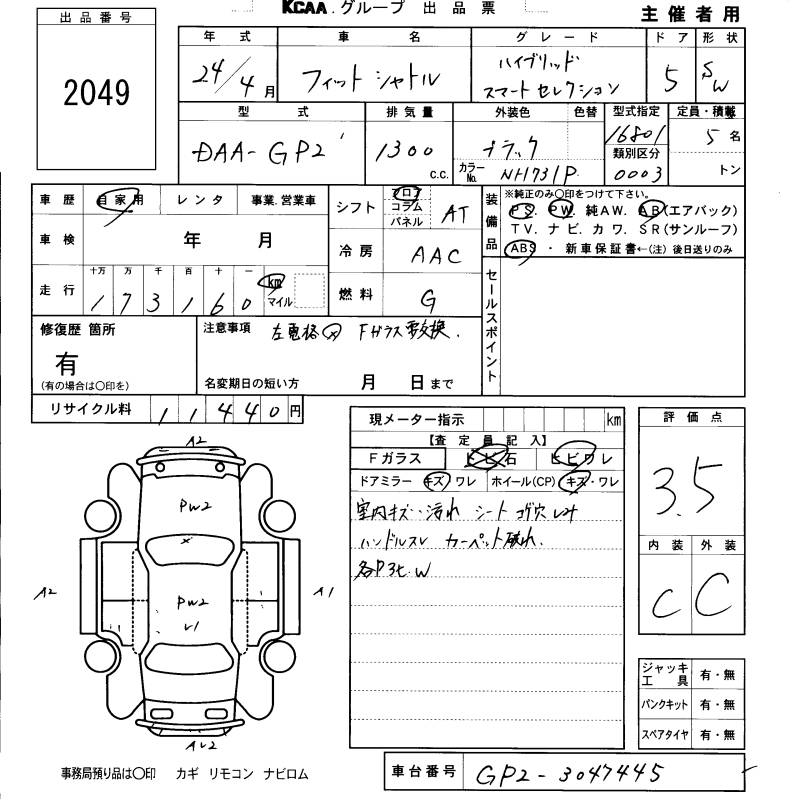 KCAA.グループ 出品票
主催者用
出品番号
2049
年式 車名 グレード ドア 形状
24/4月 フィット シャトル ハイブリッド スマートセレクション 5 SW
型式 排気量 外装色 色替 型式指定 定員・積載
DAA-GP2 1300 c.c. ブラック 16801 5名
カラーNo. NH731P 類別区分 0003 トン
車歴 自家用 レンタ 事業.営業車
シフト フロア コラム パネル AT
車検 年 月
冷房 AAC
走行 十万 万 千 百 十 一
173160 km マイル
燃料 G
装備品
※純正のみ〇印をつけて下さい。
PS. PW. 純AW. AB(エアバック)
TV. ナビ. カワ. SR(サンルーフ)
ABS ・ 新車保証書←(注) 後日送りのみ
セールスポイント
修復歴 箇所
有
(有の場合は〇印を)
注意事項 左電格 Fガラス要交換.
名変期日の短い方 月 日まで
リサイクル料 11440円
現メーター指示 km
【査定員記入】
Fガラス トビ石 ヒビワレ
ドアミラー キズ ワレ ホイール(CP) キズ・ワレ
室内キズ・汚れ シート コゲ穴 シミ
ハンドルスレ カーペット破れ.
W
評価点
3.5
内装 外装
C C
ジャッキ工具 有・無
パンクキット 有・無
スペアタイヤ 有・無
A2
PW2
X
A2 A1
PW2
V1
事務局預り品は〇印 カギ リモコン ナビロム
車台番号 GP2-3047445